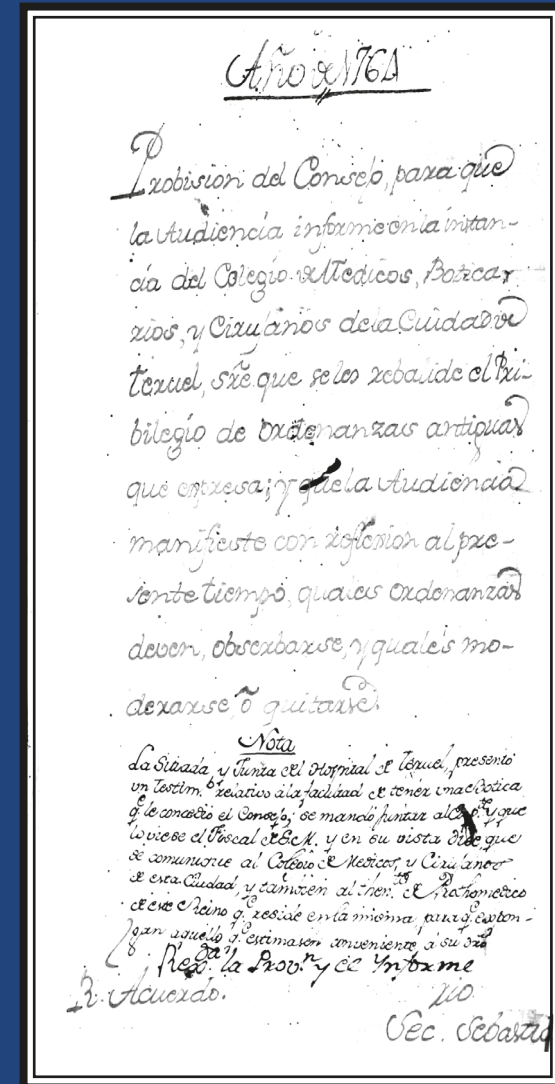 Año de 1764
Probision del Consejo, para que
la Audiencia informe en la instan-
cia del Colegio de Medicos, Botica-
rios, y Cirujanos dela Ciudad de
Teruel, sre que seles rebalide el Pri-
bilegio de ordenanzas antiguas
que expresa; y que la Audiencia
manifieste con reflexion al pre-
sente tiempo, quales ordenanzas
deven, obserbarse, y quales mo-
derarse, ô quitarse.
Nota
La Sitiada y Junta del Hospital de Teruel, presentó
un Testim.o relativo á la facultad de tener una Botica
q.e le concedio el Consejo; se mandó juntar al y que
lo viese el Fiscal de S.M. y en su vista dice que
se comunique al Colegio de Medicos, y Cirujanos
de esta Ciudad, y tambien al then.te de Prothomedico
de este Reino q.e reside en la misma, para q.e expon-
gan aquello q.e estimasen conveniente á su dro
la Prov.n y el Ynforme
R. Acuerdo.
Sec. Sebastia